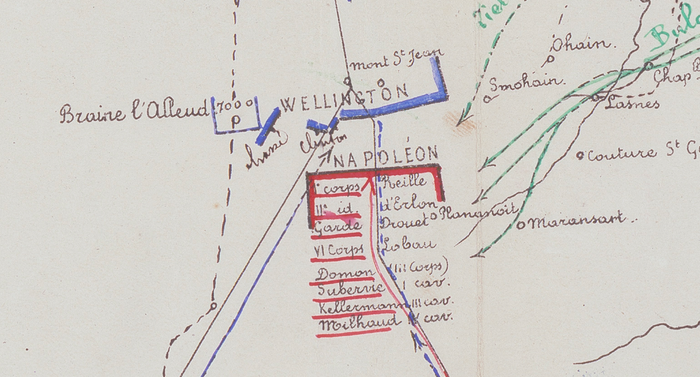 Mont St Jean
Ohain.
Smohain.
Chap
Lasnes
Braine l'Alleud
7000
WELLINGTON
Chassé
Clinton
NAPOLÉON
Couture St G
1er corps Reille
IIe id. d'Erlon
Garde Drouet
Plancenoit
Maransart.
VI Corps Lobau
Domon (III Corps)
Subervie I cav.
Kellermann III cav.
Milhaud IV cav.